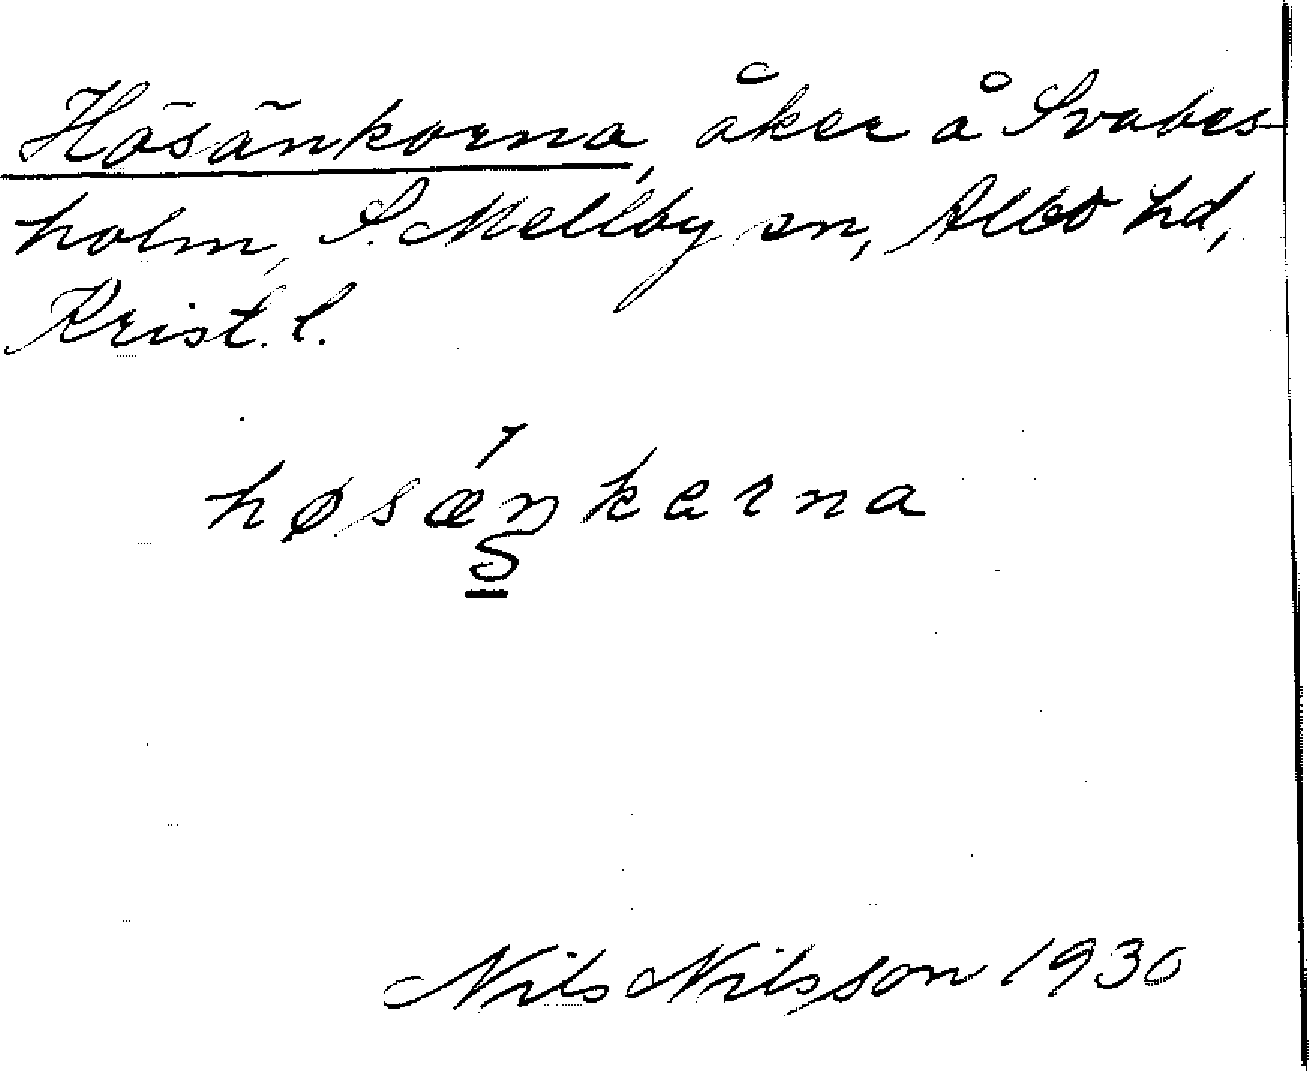 Hösänkorna, åker å Svabes-
holm, S. Mellby sn, Albo hd,
Krist. l.
høsæŋkarna
S
Nils Nilsson 1930